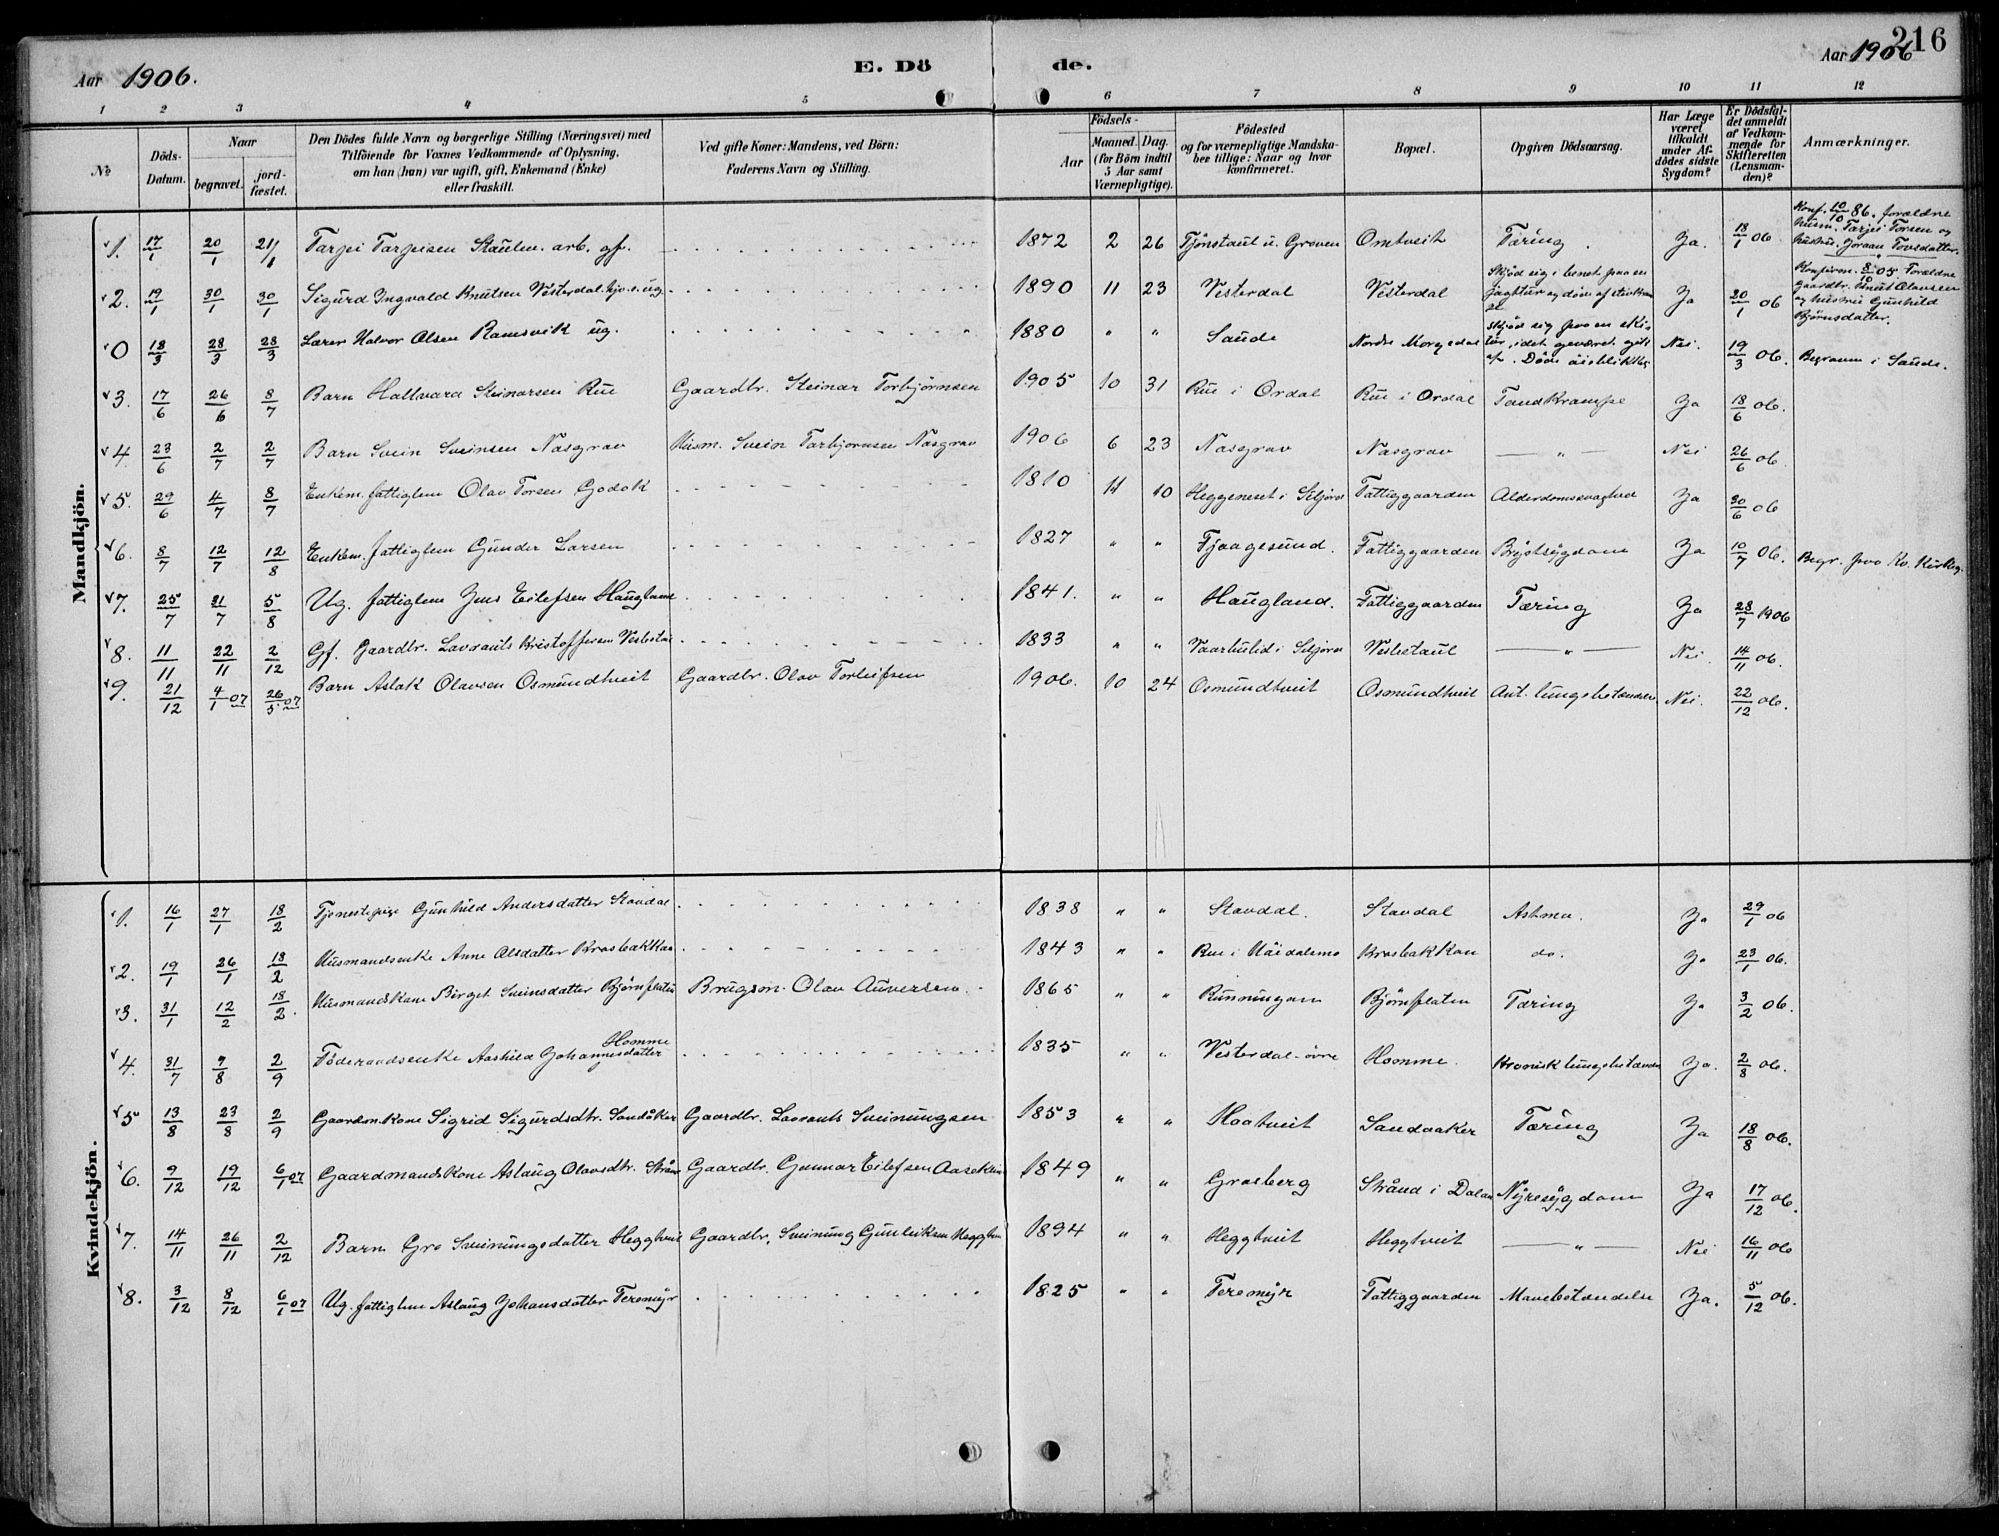 216
Aar 1906. E. Dö de. Aar 1906
1 2 3 4 5 6 7 8 9 10 11 12
№ Döds-Datum. Naar begravet. jord-fæstet. Den Dödes fulde Navn og borgerlige Stilling (Næringsvei) med Tilföiende for Voxnes Vedkommende af Oplysning, om han (hun) var ugift, gift, Enkemand (Enke) eller fraskilt. Ved gifte Koner: Mandens, ved Börn: Faderens Navn og Stilling. Födsels- Aar Maaned. Dag. (for Börn indtil 5 Aar samt Værnepligtige). Födested og for værnepligtige Mandskaber tillige: Naar og hvor konfirmeret. Bopæl. Opgiven Dödsaarsag. Har Læge været tilkaldt under Afdödes sidste Sygdom? Er Dödsfaldet anmeldt af Vedkommende for Skifteretten (Lensmanden)? Anmærkninger.
Mandkjön.
1. 17/1 20/1 21/1 Tarjei Tarjeisen Staulen. arb. gf. 1872 2 26 Tjönstaul u. Groven Omtveit Tæring. Ja. 18/1 06 Konf. 10/10 86. forældre husm. Tarjei Torsen og hustru Joraan Tovsdatter.
2. 19/1 30/1 30/1 Sigurd Ingvald Knutsen Vesterdal. ug. 1890 11 23 Vesterdal Vesterdal Skjöd sig i benet paa en jagttur og döde af Ja 20/1 06 Konfirm. 8/10 05. Forældre gaardbr. Knut Olavsen og hustru Gunhild Björnsdatter.
0 18/3 28/3 28/3 Lærer Halvor Olsen Ramsvik ug. 1880 " " Saude Nordre Morgedal Skjöd sig paa en skitur, idet geværet gik af. Döde öieblikkelig Nei. 19/3 06. Begraven i Saude.
3. 17/6 26/6 8/7 Barn Hallvard Steinarsen Rue Gaardbr. Steinar Torbjörnsen 1905 10 31 Rue i Ordal Rue i Ordal Tandkrampe Ja 18/6 06.
4. 23/6 2/7 2/7 Barn Svein Sveinsen Næsgrav Husm. Svein Torbjörnsen Næsgrav 1906 6 23 Næsgrav Næsgrav — " — Nei 26/6 06.
5. 29/6 4/7 8/7 Enkem. fattiglem Olav Torsen Godok 1810 11 10 Heggeneset i Siljord Fattiggaarden Alderdomssvaghed Ja 30/6 06
6. 8/7 12/7 12/8 Enkem. fattiglem Gunder Larsen 1827 " " Fjaagesund. Fattiggaarden Brystsygdom Ja 10/7 06. Begr. paa Kv. Kirkeg.
7. 25/7 31/7 5/8 Ug. fattiglem Jens Eilefsen Haugland 1841. " " Haugland. Fattiggaarden Tæring Ja 28/7 1906
8. 11/11 22/11 2/12 Gf. Gaardbr. Lavrants Kristoffersen Vesbetaul 1833 " " Vaarhuslid i Siljord Vesbetaul — " — Nei. 14/11 06.
9. 21/12 4/1 07 26/5 07 Barn Aslak Olavsen Osmundtveit Gaardbr. Olav Torleifsen 1906. 10 24 Osmundtveit Osmundtveit Ant. lungebetændelse Nei. 22/12 06.
Kvindekjön.
1. 16/1 27/1 18/2 Tjenestepige Gunhild Andersdatter Stavdal 1838 " " Stavdal. Stavdal Astma. Ja 29/1 06
2. 19/1 26/1 18/2 Husmandsenke Anne Olsdatter Kråsbakkan 1843 " " Rue i Håidalsmo Kråsbakkan do. Ja 23/1 06.
3. 31/1 12/2 18/2. Husmandskone Birget Sveinsdatter Björnflaten Brugsm. Olav Auversen 1865 " " Runningan Björnflaten Tæring Ja 3/2 06.
4. 31/7 9/8 2/9 Föderaadsenke Aashild Johannesdatter Homme 1835 " " Vesterdal-övre Homme. Kronisk lungebetændelse Ja. 2/8 06.
5 13/8 23/8 2/9 Gaardm.kone Sigrid Sigurdsdtr. Sandåker Gaardbr. Lavrants Sveinungsen 1853 " " Hoatveit Sandaaker Tæring Ja 18/8 06.
6. 9/12 19/12 6/1 07 Gaardmandskone Aslaug Olavsdtr. Strånd Gaardbr. Gunnar Eilefsen 1849 " " Grasberg Strånd i Dalan Nyresygdom Ja 17/12 06.
7. 14/11 26/11 2/12 Barn Gro Sveinungsdatter Heggtveit Gaardbr. Sveinung Gunleiksen Heggtveit 1894 " " Heggtveit Heggtveit — " — Nei 16/11 06
8. 3/12 8/12 6/1 07 Ug. fattiglem Aslaug Johansdatter Teremyr 1825 " " Teremyr Fattiggaarden Mavebetændelse Ja. 5/12 06.